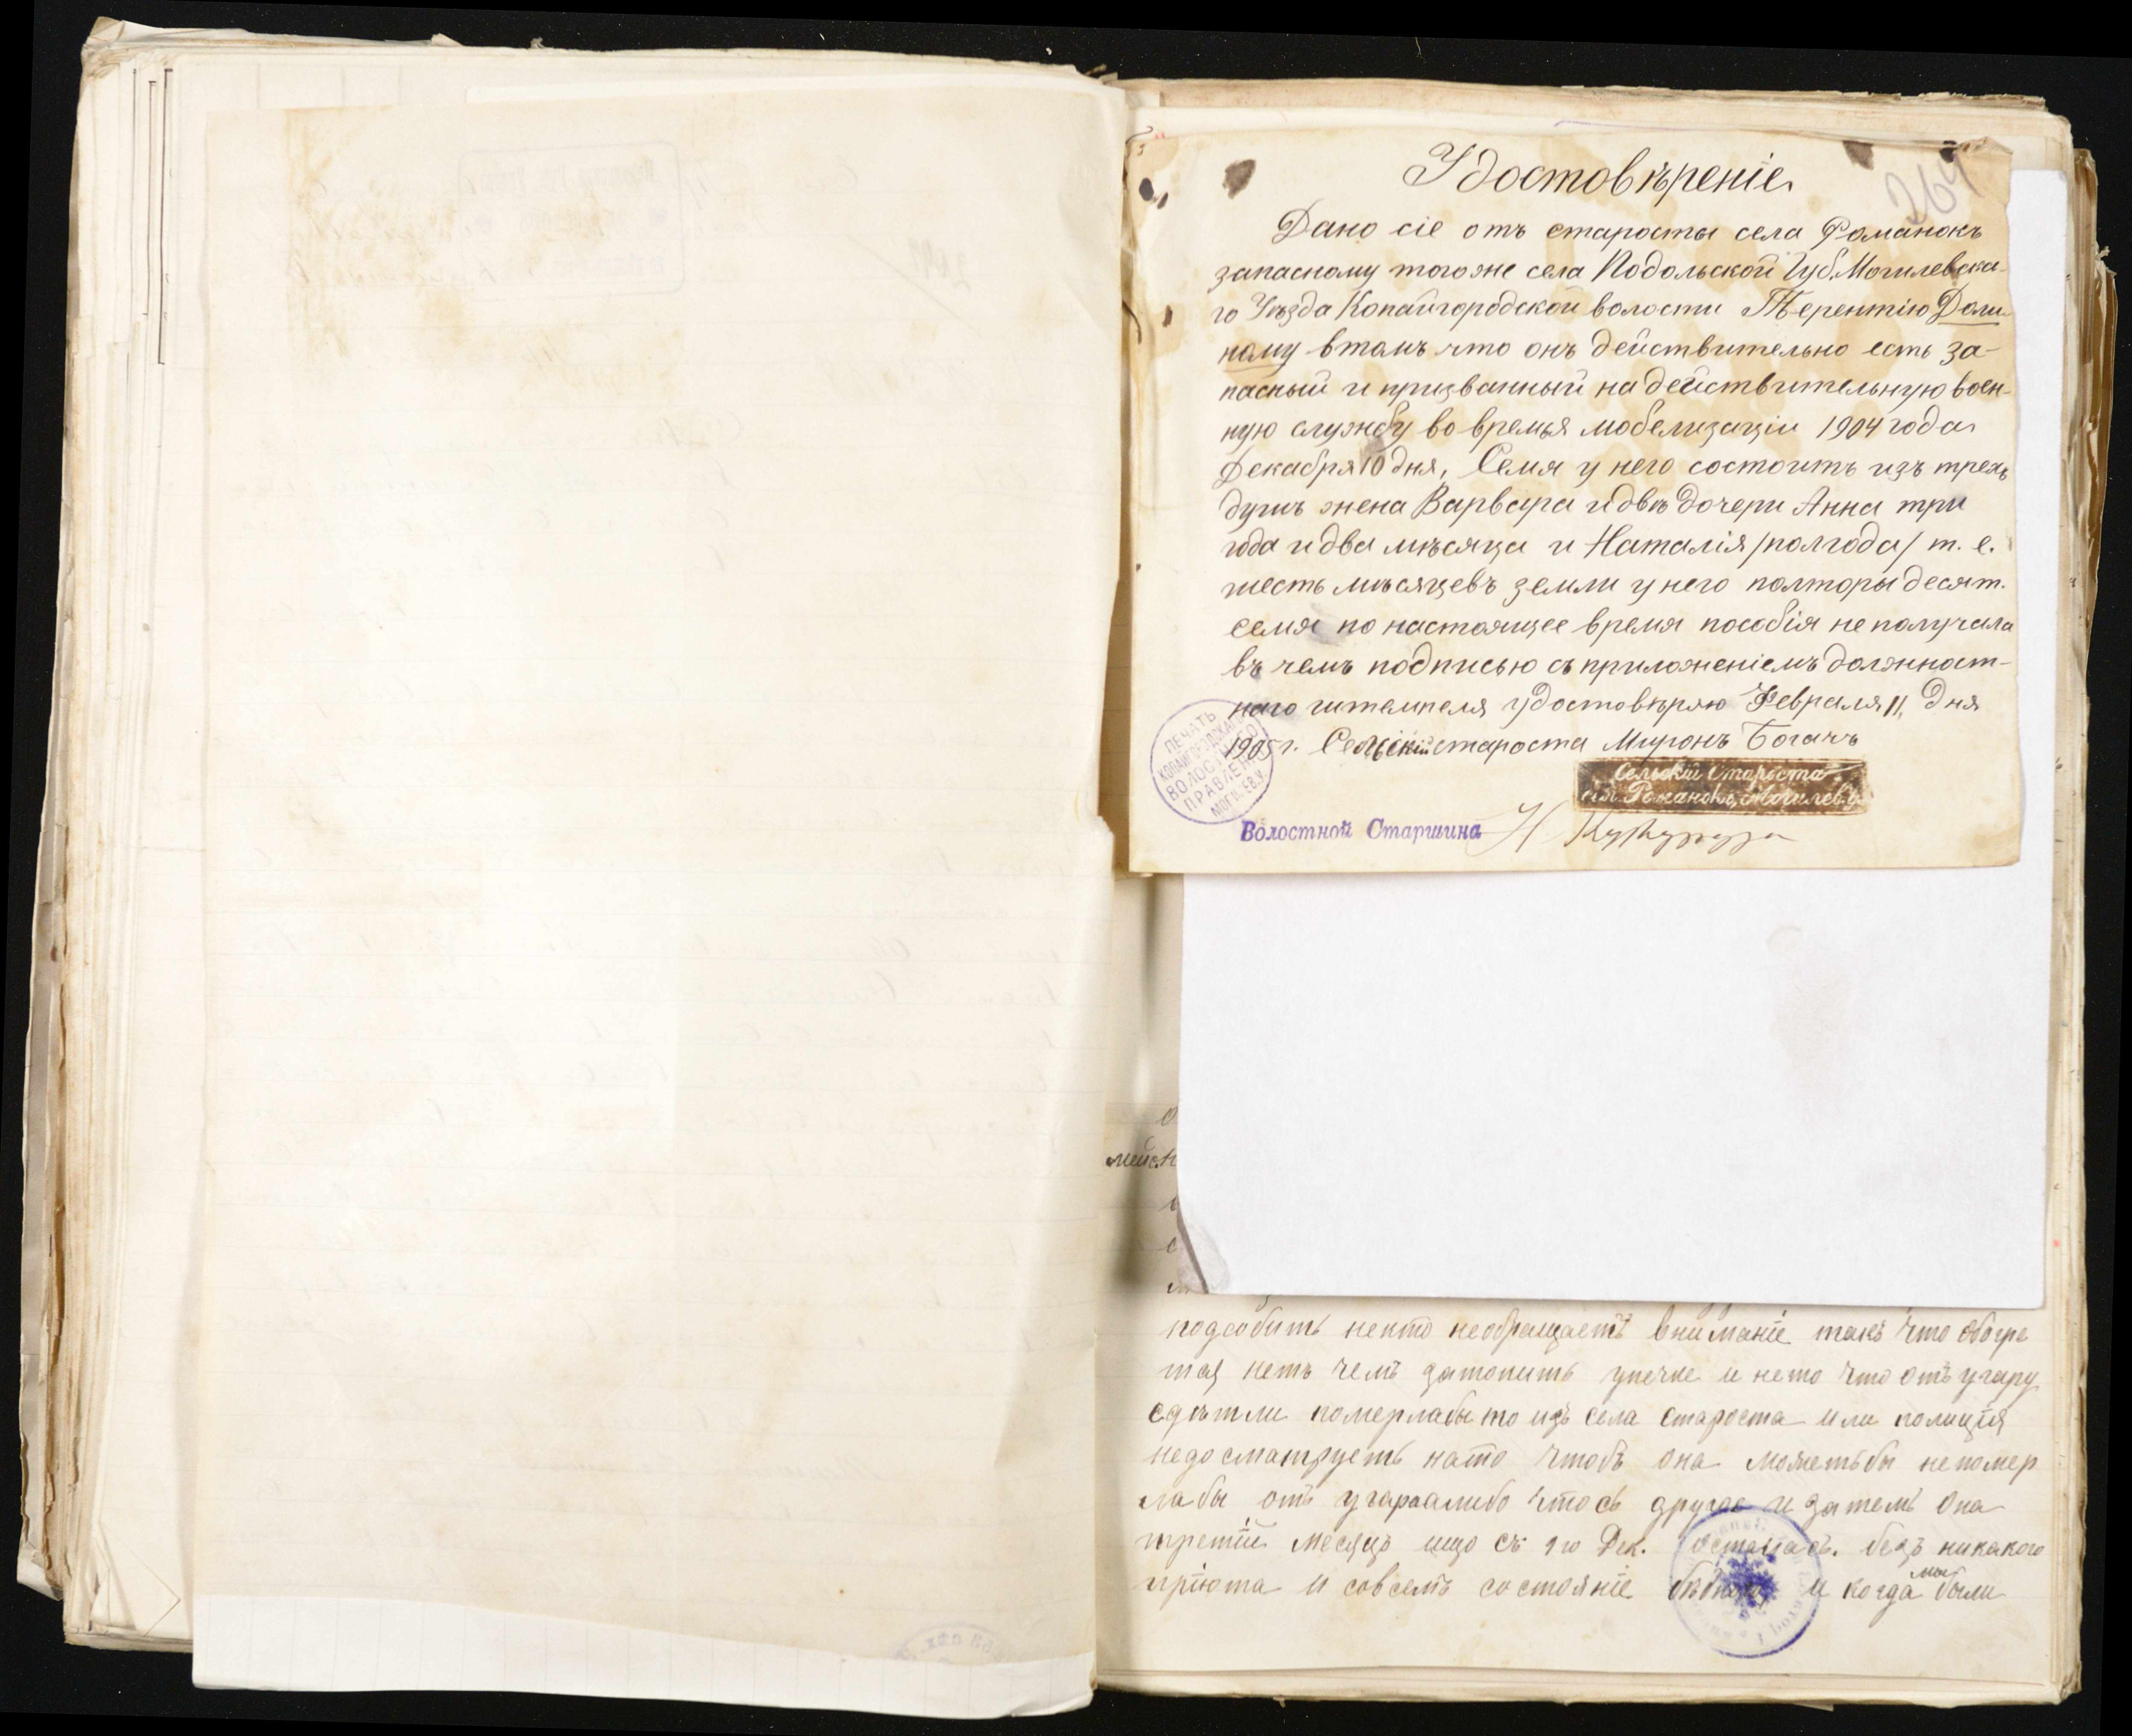 Удостовѣреніе
264
Дано сіе отъ старосты села Романокъ
запасному того же села Подольской Губ. Могилевска-
го Уѣзда Копайгородской волости Терентію Доли-
ному втомъ что онъ действительно есть за-
пасный и призванный на действительную воен-
ную службу во времья мобелизаціи 1904 года
Декабря 10 дня, Семя у него состоитъ изъ трехъ
душъ жена Варвара и двѣ дочери Анна три
года и два мѣсяца и Наталія /полгода/ т. е.
шесть мѣсяцевъ земли у него полторы десят.
семя по настоящее время пособія не получала
въ чемъ подписью съ приложеніемъ должност-
наго штемпеля удостовѣряю Февраля 11, дня
1905 г. Сельскій староста Миронъ Боганъ
ПЕЧАТЬ КОПАЙГОРОДСКАГО ВОЛОСТНОГО ПРАВЛЕНІЯ МОГИЛЕВ. У.
Сельскій Староста
сел. Романокъ, Могилев. у.
Волостной Старшина Н Кукуруза
мейст
подсобить некто необращаетъ вниманіе такъ что обогре
тся нетъ чемъ затопить упечке и нето что отъ угару
сдѣтми померлабы то изъ села староста или полиція
недосматруеть нато чтобъ она можетьбы непомер
лабы отъ угараалибо чтось другое и затемъ она
третій месяцъ ищо съ 1го Дек. осталась. безъ никакого
пріюта и совсемъ состояніе бѣдное и когда мы были